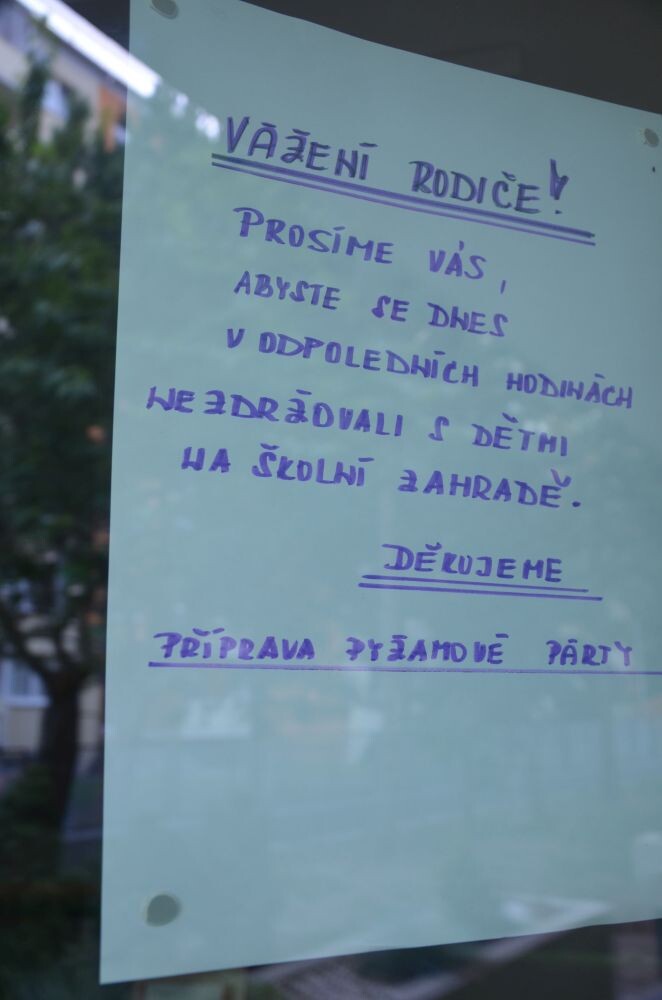 VÁŽENÍ RODIČE!
PROSÍME VÁS,
ABYSTE SE DNES
V ODPOLEDNÍCH HODINÁCH
NEZDRŽOVALI S DĚTMI
NA ŠKOLNÍ ZAHRADĚ.
DĚKUJEME
PŘÍPRAVA PYŽAMOVÉ PÁRTY